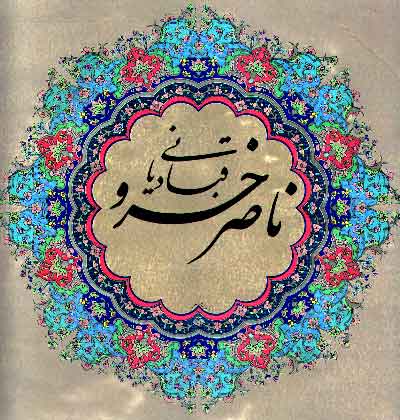 ناصر خسرو
قبادیانی